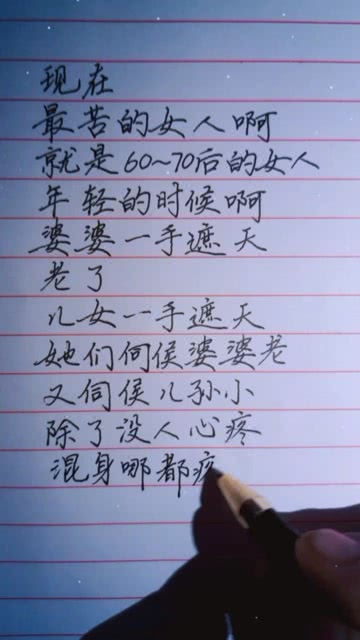 现在
最苦的女人啊
就是60~70后的女人
年轻的时候啊
婆婆一手遮天
老了
儿女一手遮天
她们伺侯婆婆老
又伺侯儿孙小
除了没人心疼
混身哪都疼